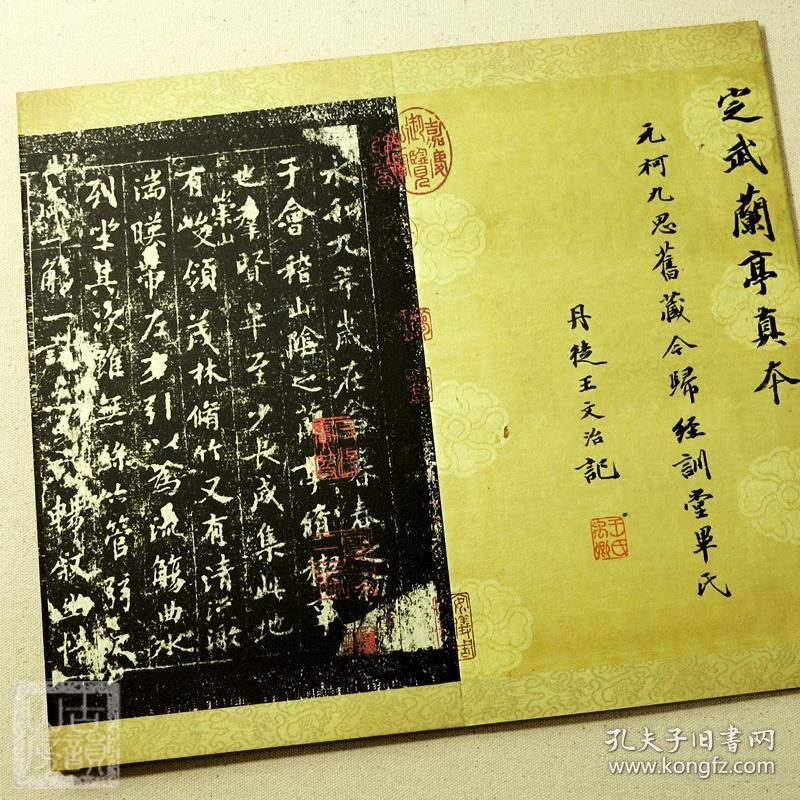 定武蘭亭真本
元柯九思舊藏今歸經訓堂畢氏
丹徒王文治記
王氏禹卿
嘉慶御覽之寶
永和九年歲在癸丑暮春之初
于會稽山陰之蘭亭脩禊事
也羣賢畢至少長咸集此地
有崇山峻領茂林脩竹又有清流激
湍暎帶左右引以為流觴曲水
列坐其次雖無絲竹管弦之
一觴一詠亦足以暢叙幽情
孔夫子旧书网
www.kongfz.com